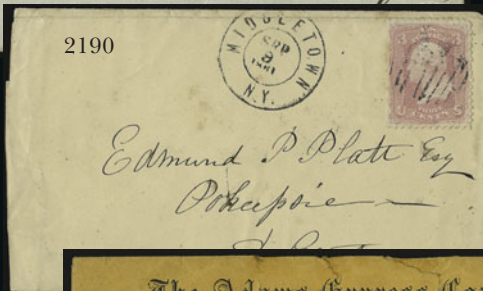 2190
MIDDLETOWN
SEP
N.Y.
3 3
CENTS
Edmund P Platt Esq
Pokeepsie
The Adams Express Co